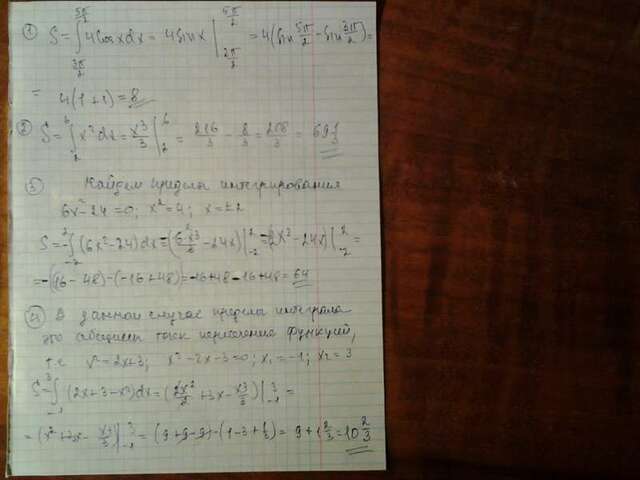 ① S = ∫ 4cosxdx = 4sinx | = 4(sin 5π/2 - sin 3π/2) =
= 4(1+1) = 8
② S = ∫ x²dx = x³/3 | = 216/3 - 8/3 = 208/3 = 69 1/3
③ Найдем пределы интегрирования
6x²-24=0; x²=4; x=±2
S = -∫ (6x²-24)dx = -(6x³/3 - 24x) | = -(2x³-24x) | =
= -(16-48)-(-16+48) = -16+48-16+48 = 64
④ В данном случае пределы интеграла
это абсциссы точек пересечения функций,
т.е x²=2x+3; x²-2x-3=0; x₁=-1; x₂=3
S = ∫ (2x+3-x²)dx = (2x²/2 + 3x - x³/3) | =
= (x²+3x - x³/3) | = (9+9-9)-(1-3+1/3) = 9+1 2/3 = 10 2/3